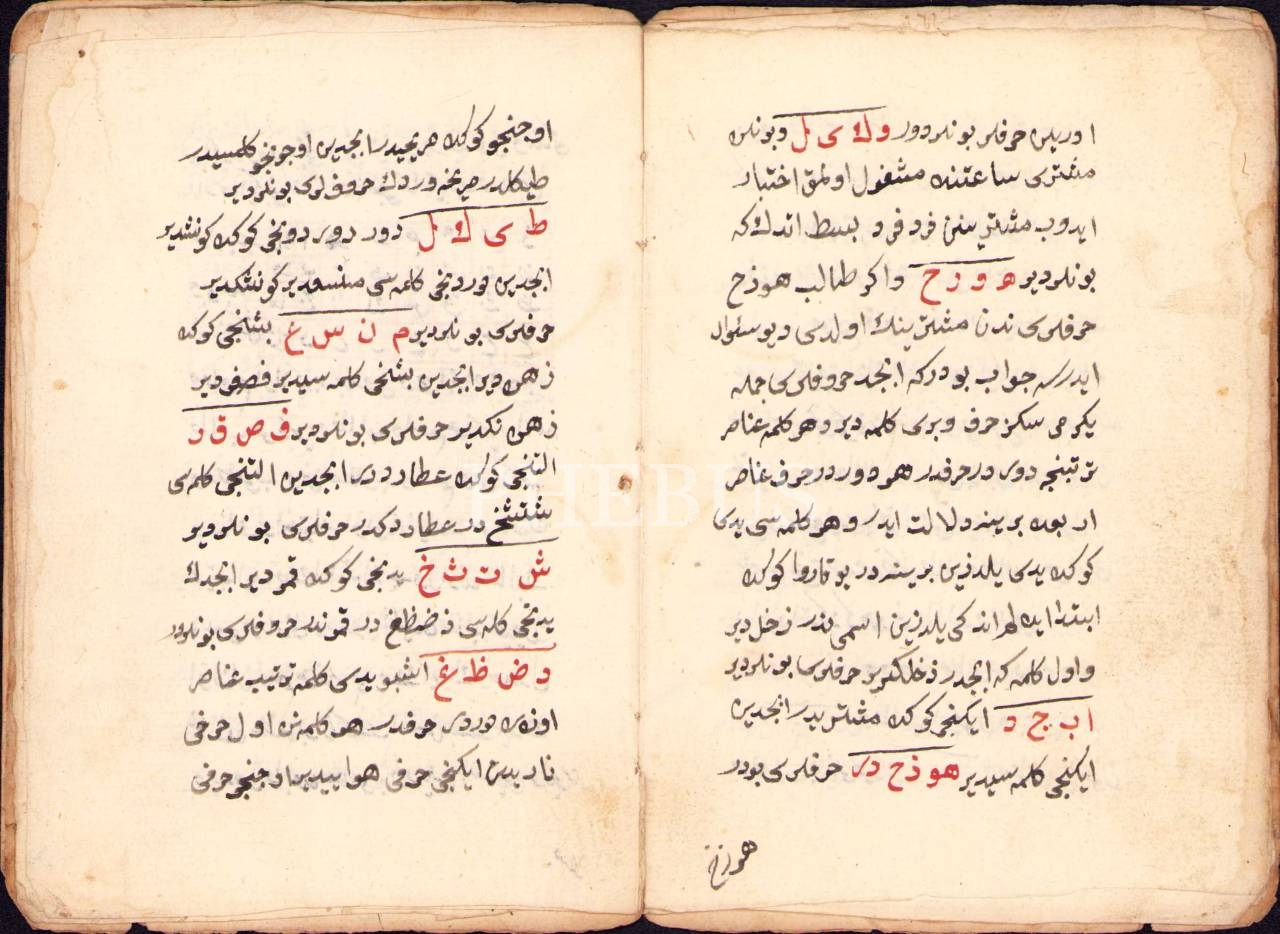 اوریلن حرفلر بونلردور و ك ى ل وبونلرن
مشتری ساعتنده مشغول اولمق اختیار
ایدوب مشترینن فرد فرد بسط اتدك كه
بونلردیر ه و ز ح واكر طالب هوزح
حرفلری ندن مشترینك اولدی دیو سئوال
ایدرسه جواب بودركه ابجد حروفلری جمله
یكرمی سكز حرف ویدی كلمه دیر وهر كلمه عناصر
ترتبنجه دورد حرفدر وهر دورد حرف عناصر
اربعه برینه دلالت ایدر وهر كلمه سی یدی
كوكده یدی یلدزین برینه در یوقاروا كوكده
ابتدا ایده لم اندكی یلدزین اسمی ندر زحل دیر
واول كلمه كه ابجددر زحلكدیر حرفلری بونلردیر
ا ب ج د ایكنجی كوكده مشتریدر ابجدین
ایكنجی كلمه سیدیر هوزح در حرفلری بودر
ه و ز ح
اوجنجو كوكده مریخدر ابجدین اوجونجو كلمسیدر
طیكلدر مریخه وردك حروفلری بونلردیر
ط ى ك ل دور دوردونجی كوكده كونشدیر
ابجدین دوردنجی كلمه سی منسعدیر كونشكدیر
حرفلری بونلردیر م ن س ع بشنجی كوكده
زهره دیر ابجدین بشنجی كلمه سیدیر فصقردیر
زهره نكدیر حرفلری بونلردیر ف ص ق ر
التنجی كوكده عطارددر ابجدین التنجی كلمه سی
شتثخ در عطاردكدر حرفلری بونلردیر
ش ت ث خ یدنجی كوكده قمردیر ابجدك
یدنجی كلمه سی ذضظغ در قمرندر حروفلری بونلردر
ذ ض ظ غ اشبو یدی كلمه ترتیب عناصر
اوزره دورد حرفدر هر كلمه نن اول حرفی
ناریدر ایكنجی حرفی هواییدیر اوجنجی حرفی
PHEBUS